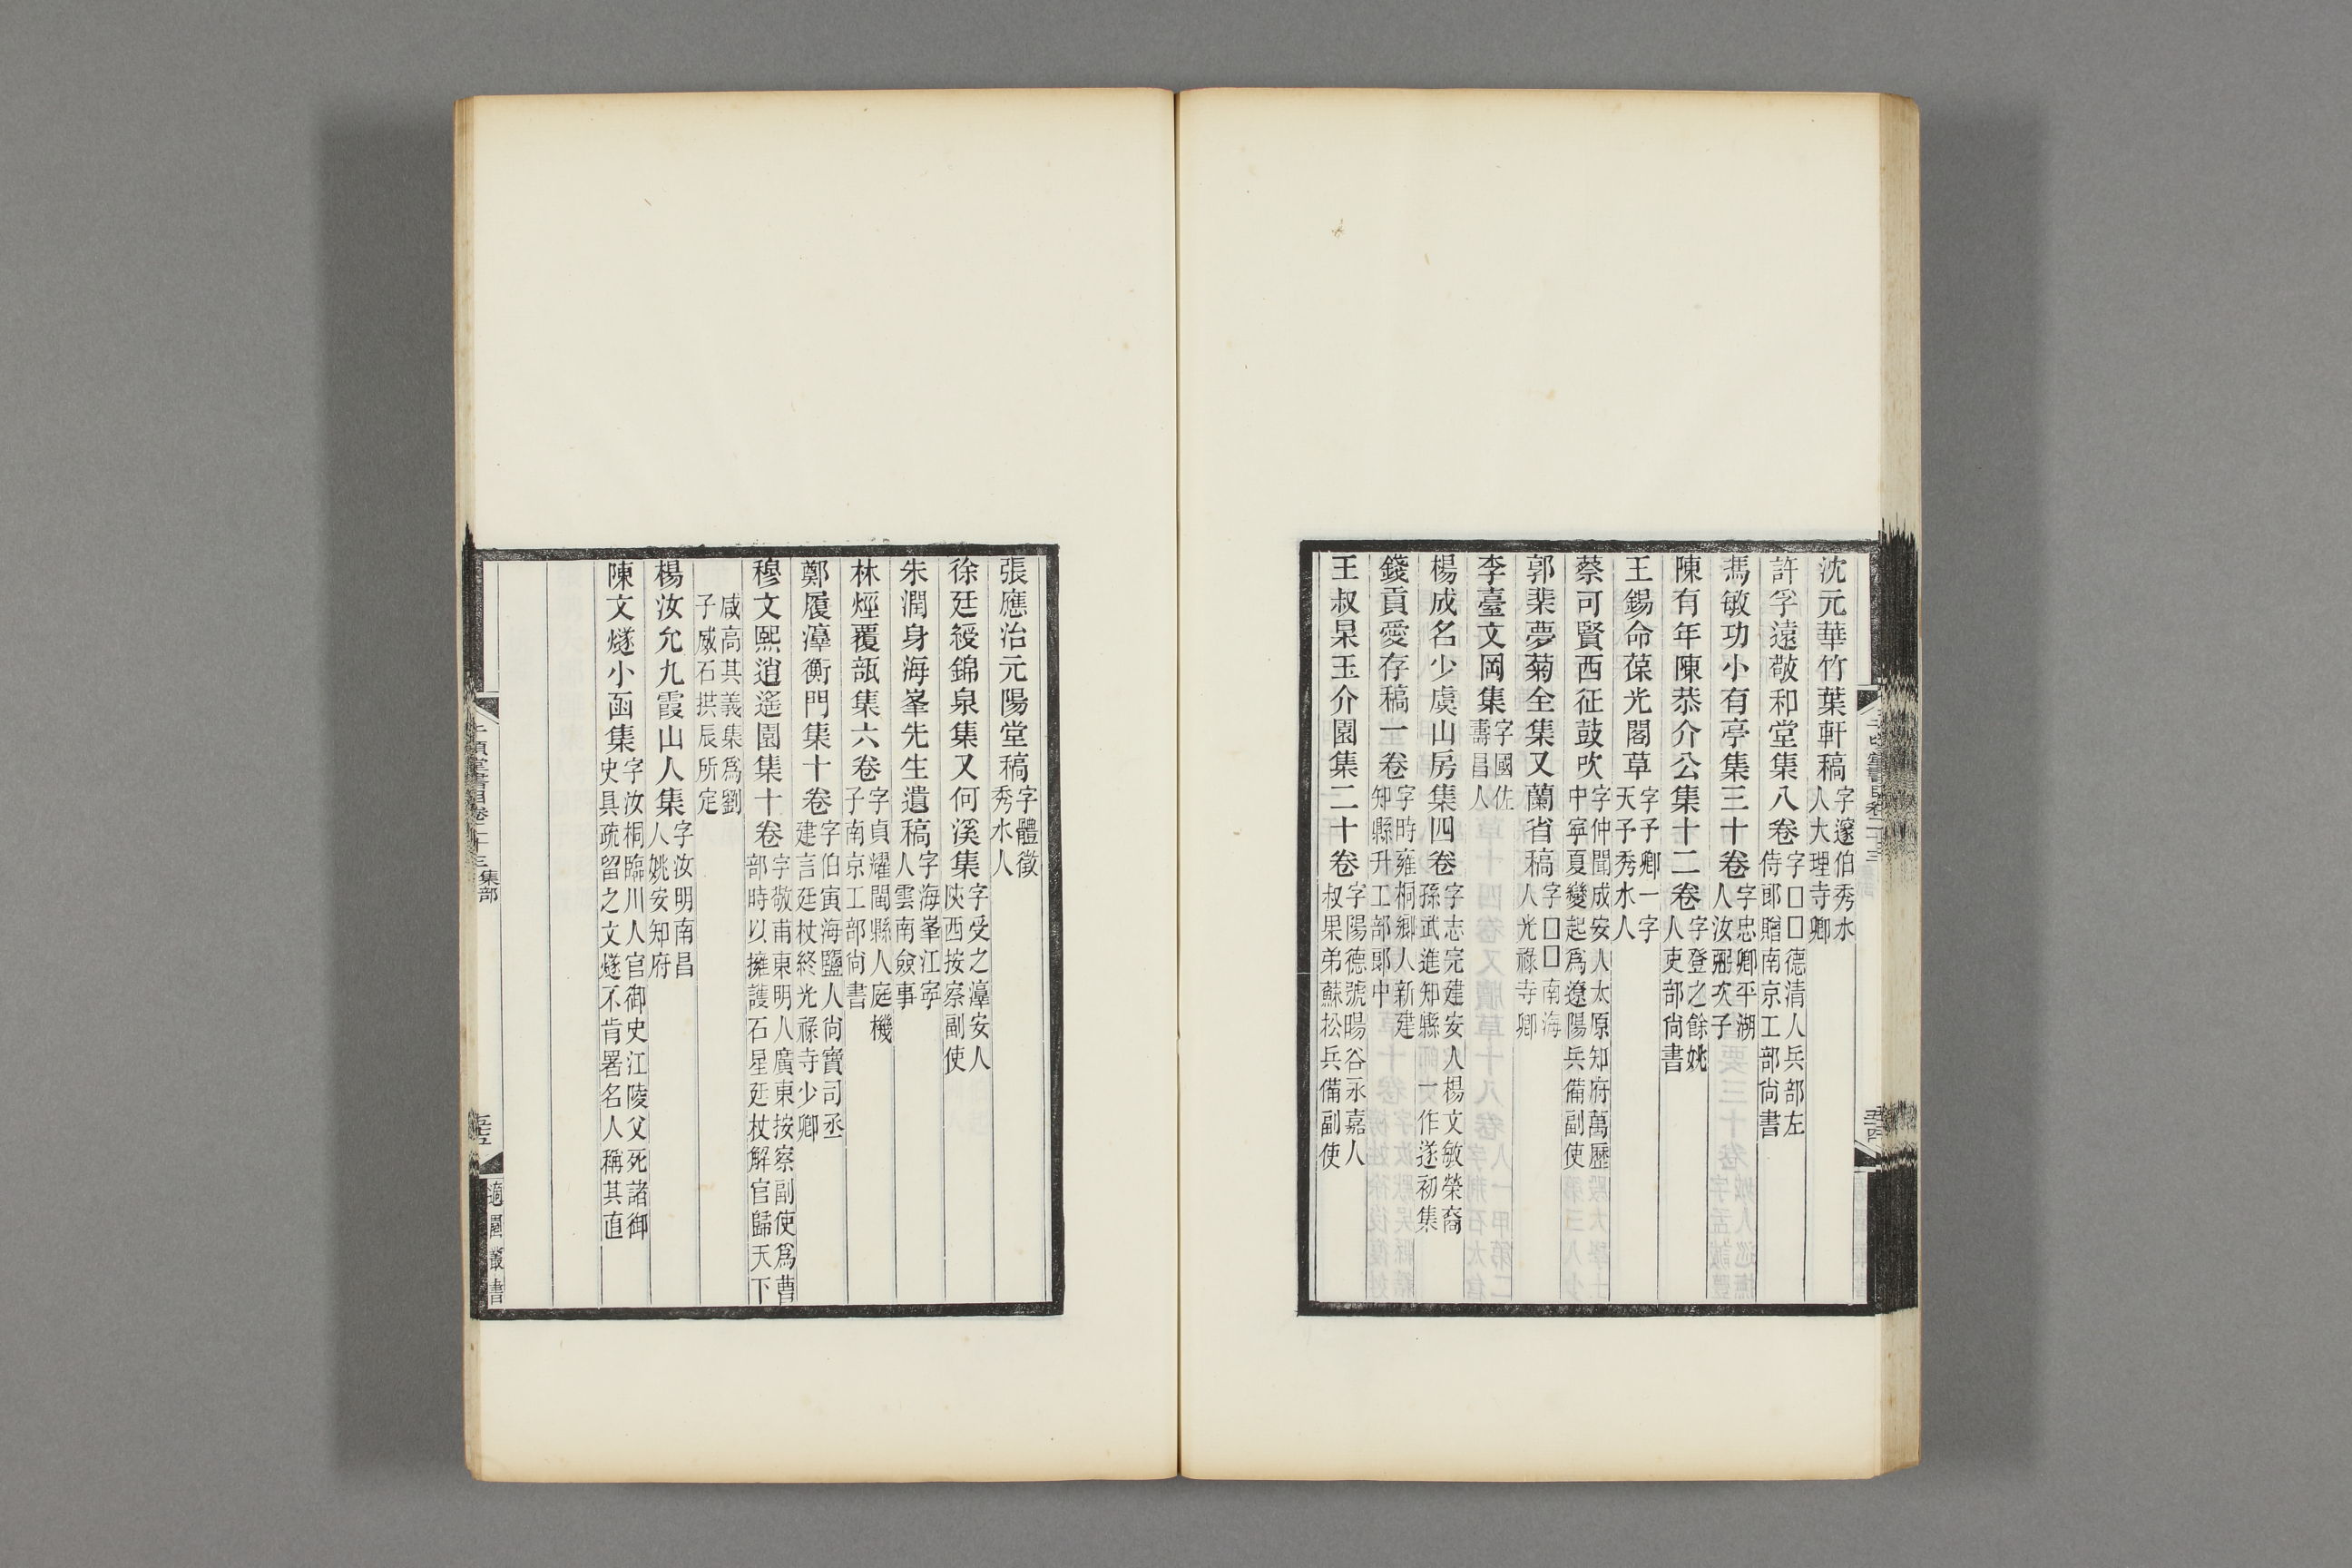 沈元華竹葉軒稿字邃伯秀水人大理寺卿
許孚遠敬和堂集八卷字囗囗德清人兵部左侍郎贈南京工部尚書
馮敏功小有亭集三十卷字忠卿平湖人汝弼次子
陳有年陳恭介公集十二卷字登之餘姚人吏部尚書
王錫命葆光閣草字予卿一字天予秀水人
蔡可賢西征鼓吹字仲聞成安人太原知府萬歷中寧夏變起爲遼陽兵備副使
郭棐夢菊全集又蘭省稿字囗囗南海人光祿寺卿
李臺文岡集字國佐壽昌人
楊成名少虞山房集四卷字志完建安人楊文敏榮裔孫武進知縣一作遂初集
錢貢愛存稿一卷字時雍桐鄉人新建知縣升工部郎中
王叔杲玉介園集二十卷字陽德號暘谷永嘉人叔果弟蘇松兵備副使
張應治元陽堂稿字體徵秀水人
徐廷綬錦泉集又何溪集字受之瀘安人陝西按察副使
朱潤身海峯先生遺稿字海峯江寧人雲南僉事
林烴覆瓿集六卷字貞耀閩縣人庭機子南京工部尚書
鄭履瀘衡門集十卷字伯寅海鹽人尚寶司丞建言廷杖終光祿寺少卿
穆文熙逍遙園集十卷字敬甫東明人廣東按察副使爲曹部時以擁護石星廷杖解官歸天下
咸高其義集爲劉子威石拱辰所定
楊汝允九霞山人集字汝明南昌人姚安知府
陳文燧小函集字汝桐臨川人官御史江陵父死諸御史具疏留之文燧不肯署名人稱其直
千頃堂書目卷二十三 集部
適園叢書